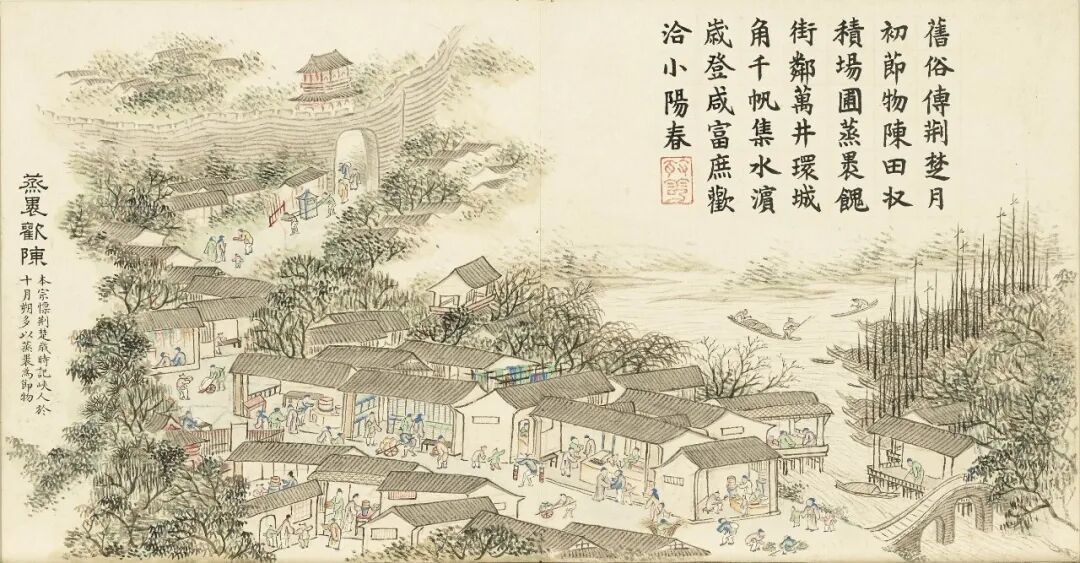 舊俗傳荆楚月
初節物陳田収
積場圃蒸裹餽
街鄰萬井環城
角千帆集水濱
歲登咸富庶歡
洽小陽春
蒸裹歡陳
本宗懍荆楚歲時記峽人於
十月朔多以蒸裹為節物